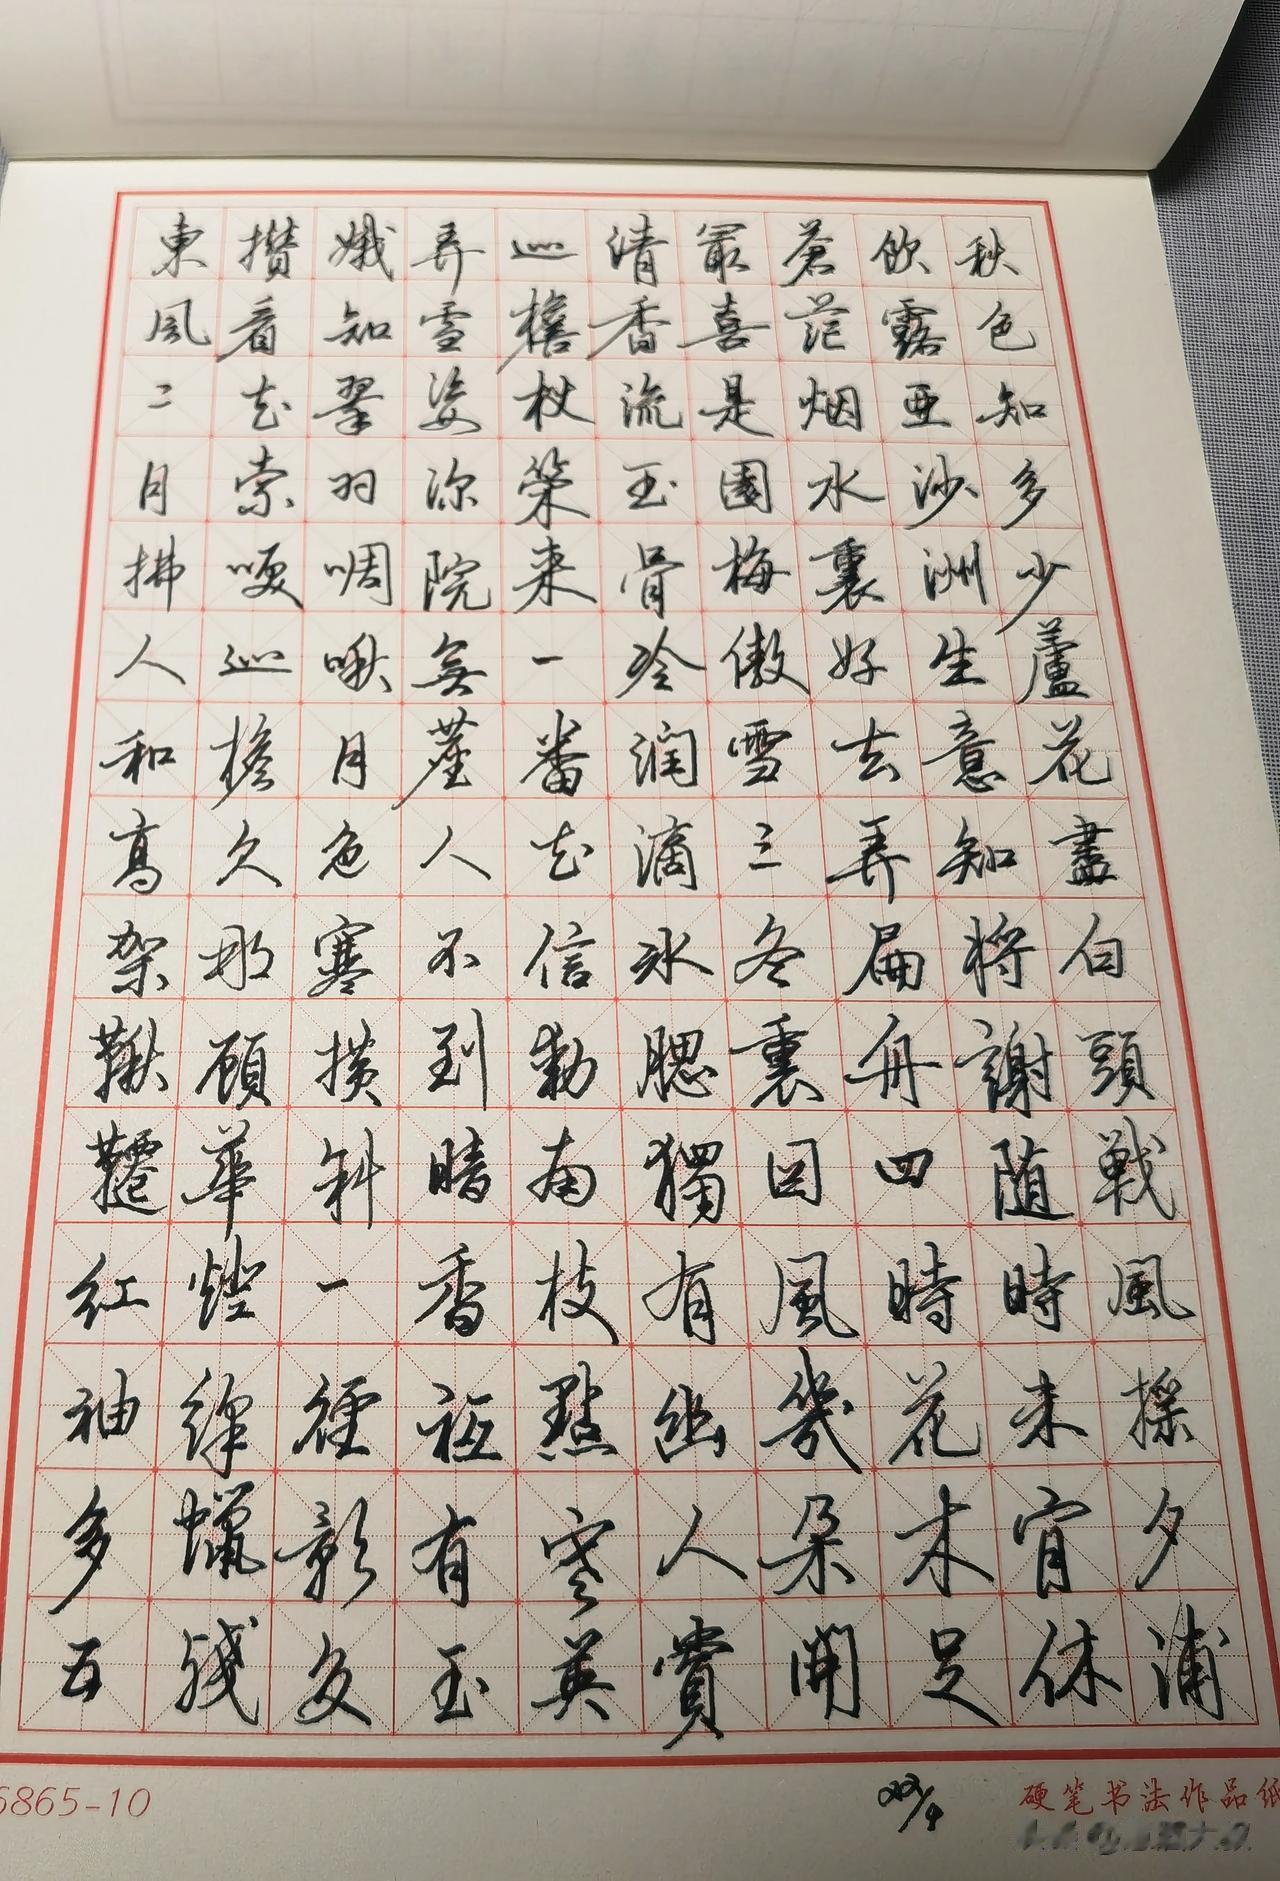 秋色知多少蘆花盡白頭戰風探夕浦
飲露亜沙洲生意知將謝随時未肯休
蒼茫烟水裏好去弄扁舟四時花木足
最喜是園梅傲雪三冬裏因風幾朵開
清香流玉骨冷潤滴冰腮獨有幽人賞
巡檐杖策来一番花信動南枝點寒英
弄雪姿深院無塵人不到暗香祗有玉
娥知翠羽啁啾月色寒横斜一徑影交
攢看花索笑巡檐久那顧華燈絳蠟殘
東風二月拂人和高架鞦韆紅袖多五
6865-10
硬笔书法作品纸